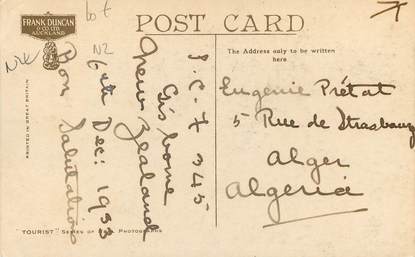 FRANK DUNCAN
& CO. LTD.
AUCKLAND
POST CARD
The Address only to be written
here
PRINTED IN GREAT BRITAIN
"TOURIST" SERIES OF PHOTOGRAPHS
NZ
P.C. 7 345
Gisborne
New Zealand
6th Dec: 1933
Bon Salutations
Eugenie Prétat
5 Rue de Strasbourg
Alger
Algeria